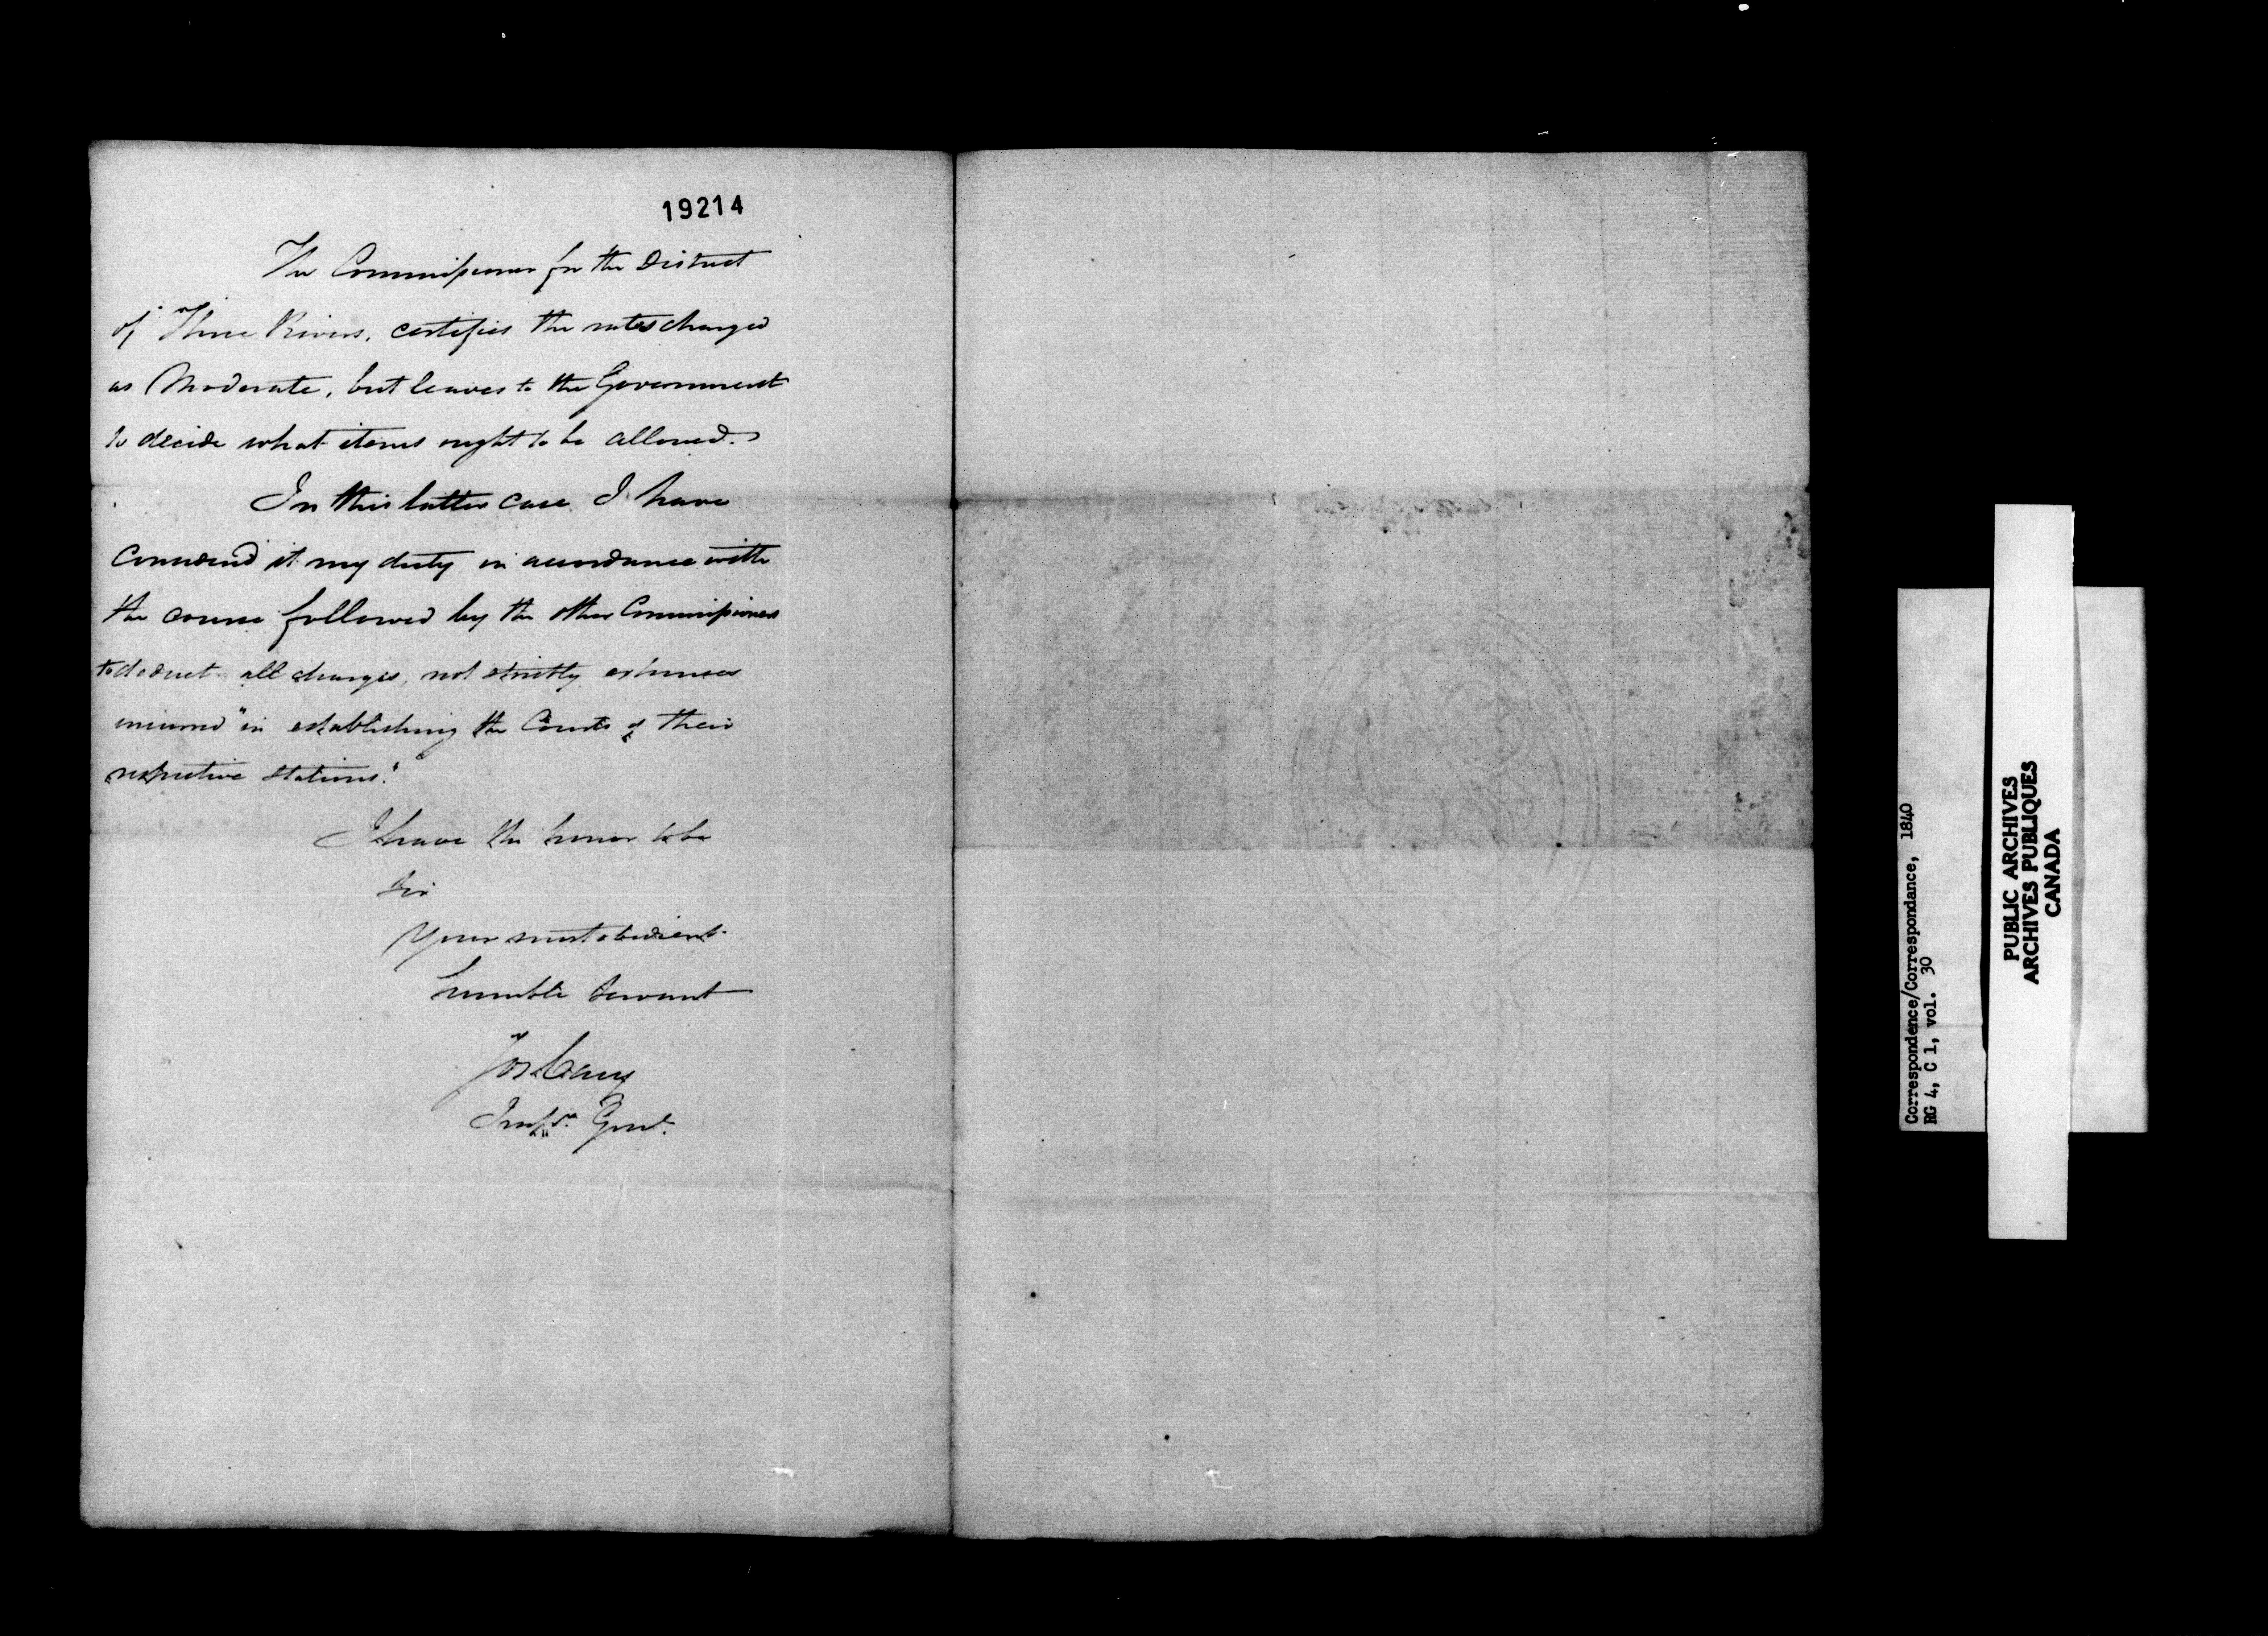 19214
The Commissioner for the District
of Three Rivers, certifies the rates charged
as Moderate, but leaves to the Government
to decide what items ought to be allowed.
In this latter case I have
Considered it my duty in accordance with
the course followed by the other Commissioners
to deduct all charges, not strictly expenses
incurred "in establishing the Courts of their
respective stations."
I have the honor to be
Sir
Your most obedient
humble Servant
Jos Cary
Insp. Genl.
Correspondence/Correspondance, 1840
RG 4, C 1, vol. 30
PUBLIC ARCHIVES
ARCHIVES PUBLIQUES
CANADA